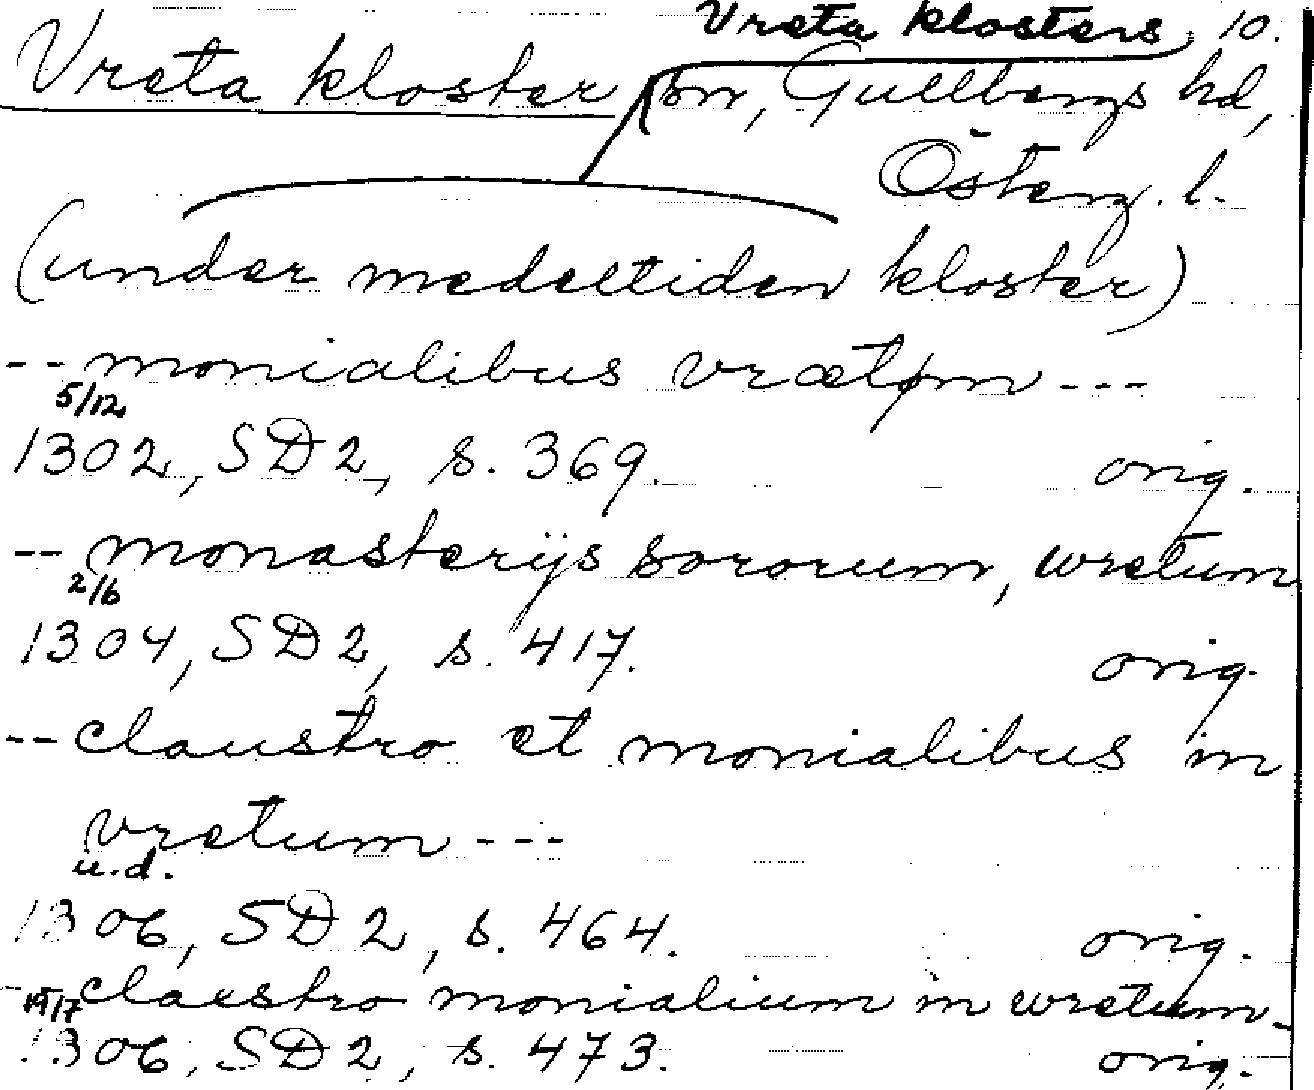 Vreta klosters 10.
Vreta kloster sn, Gullbergs hd,
Österg. l.
(under medeltiden kloster)
-- monialibus vrætom ---
5/12
1302, SD 2, s. 369. orig.
-- monasterijs sororum, wretum
2/6
1304, SD 2, s. 417. orig.
-- claustro et monialibus in
vretum ---
u.d.
1306, SD 2, s. 464. orig.
-- claustro monialium in wretum -
19/7
1306, SD 2, s. 473. orig.